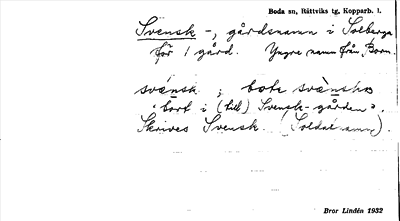 Boda sn, Rättviks tg, Kopparb. l.
Svensk -, gårdsnamn i Solberga
för 1 gård. Yngre namn från Born.
svánsk ; bota svànska
"bort i (till) Svensk-gården".
Skrives Svensk. (Soldatnamn).
Bror Lindén 1932